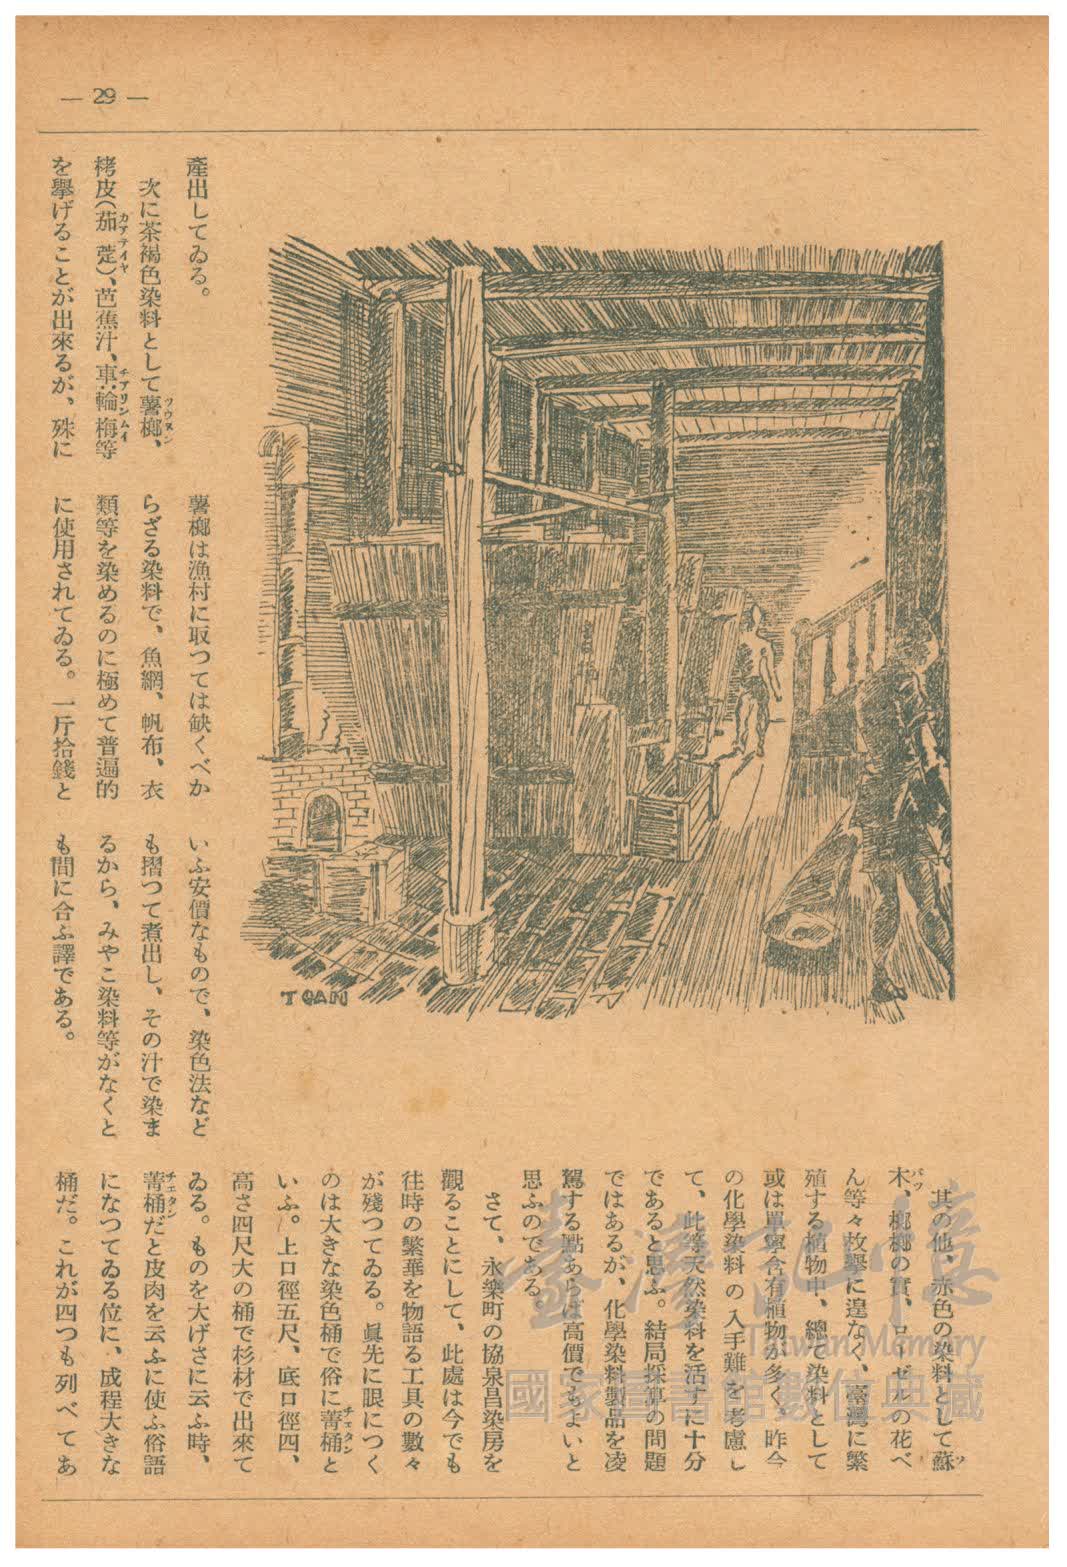 — 29 —
産出してゐる。
ソウヌン
次に茶褐色染料として薯榔、
カアテイヤ チアリンムイ
栲皮(茄萣)、芭蕉汁、車輪梅等
を擧げることが出來るが、殊に
薯榔は漁村に取つては缺くべか
らざる染料で、魚網、帆布、衣
類等を染めるのに極めて普遍的
に使用されてゐる。一斤拾錢と
いふ安價なもので、染色法など
も摺つて煮出し、その汁で染ま
るから、みやこ染料等がなくと
も間に合ふ譯である。
TGAN
其の他、赤色の染料として蘇
ソ
バツ
木、檳榔の實、ローゼルの花べ
ん等々枚擧に遑なく、臺灣に繁
殖する植物中、總て染料として
或は單寧含有植物が多く、昨今
の化學染料の入手難を考慮し
て、此等天然染料を活すに十分
であると思ふ。結局採算の問題
ではあるが、化學染料製品を凌
駕する點あらば高價でもよいと
思ふのである。
さて、永樂町の協泉昌染房を
觀ることにして、此處は今でも
往時の繁華を物語る工具の數々
が殘つてゐる。眞先に眼につく
チエタン
のは大きな染色桶で俗に菁桶と
いふ。上口徑五尺、底口徑四、
高さ四尺大の桶で杉材で出來て
ゐる。ものを大げさに云ふ時、
チエタン
菁桶だと皮肉を云ふに使ふ俗語
になつてゐる位に、成程大きな
桶だ。これが四つも列べてあ
臺灣記憶
Taiwan Memory
國家圖書館數位典藏